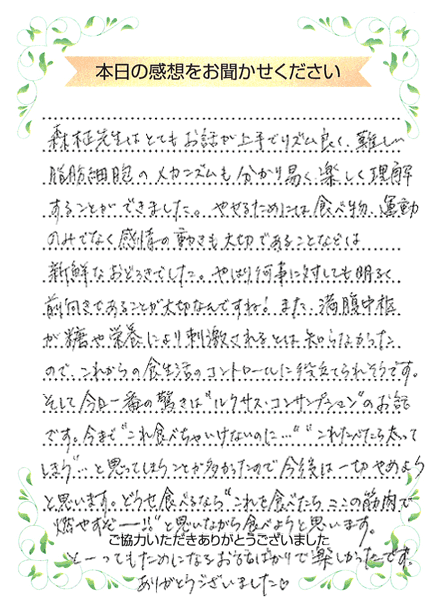 本日の感想をお聞かせください
森柾先生はとてもお話が上手でリズム良く、難しい
脂肪細胞のメカニズムも分かり易く、楽しく理解
することができました。やせるためには食べ物、運動
のみでなく感情の動きも大切であることなどは
新鮮なおどろきでした。やはり何事に対しても明るく
前向きであることが大切なんですね！また、満腹中枢
が糖や栄養により刺激されるとは知らなかった
ので、これからの食生活のコントロールに役立てられそうです。
そして今日一番の驚きは"ルクサス・コンサンプション"のお話
です。今まで"これ食べちゃいけないのに…""これたべたら太って
しまう"…と思ってしまうことが多かったので今後は一切やめよう
と思います。どうせ食べるなら"これを食べたら、ここの筋肉で
燃やすぞー!!"と思いながら食べようと思います。
ご協力いただきありがとうございました
とーってもためになるお話ばかりで楽しかったです。
ありがとうございました♡